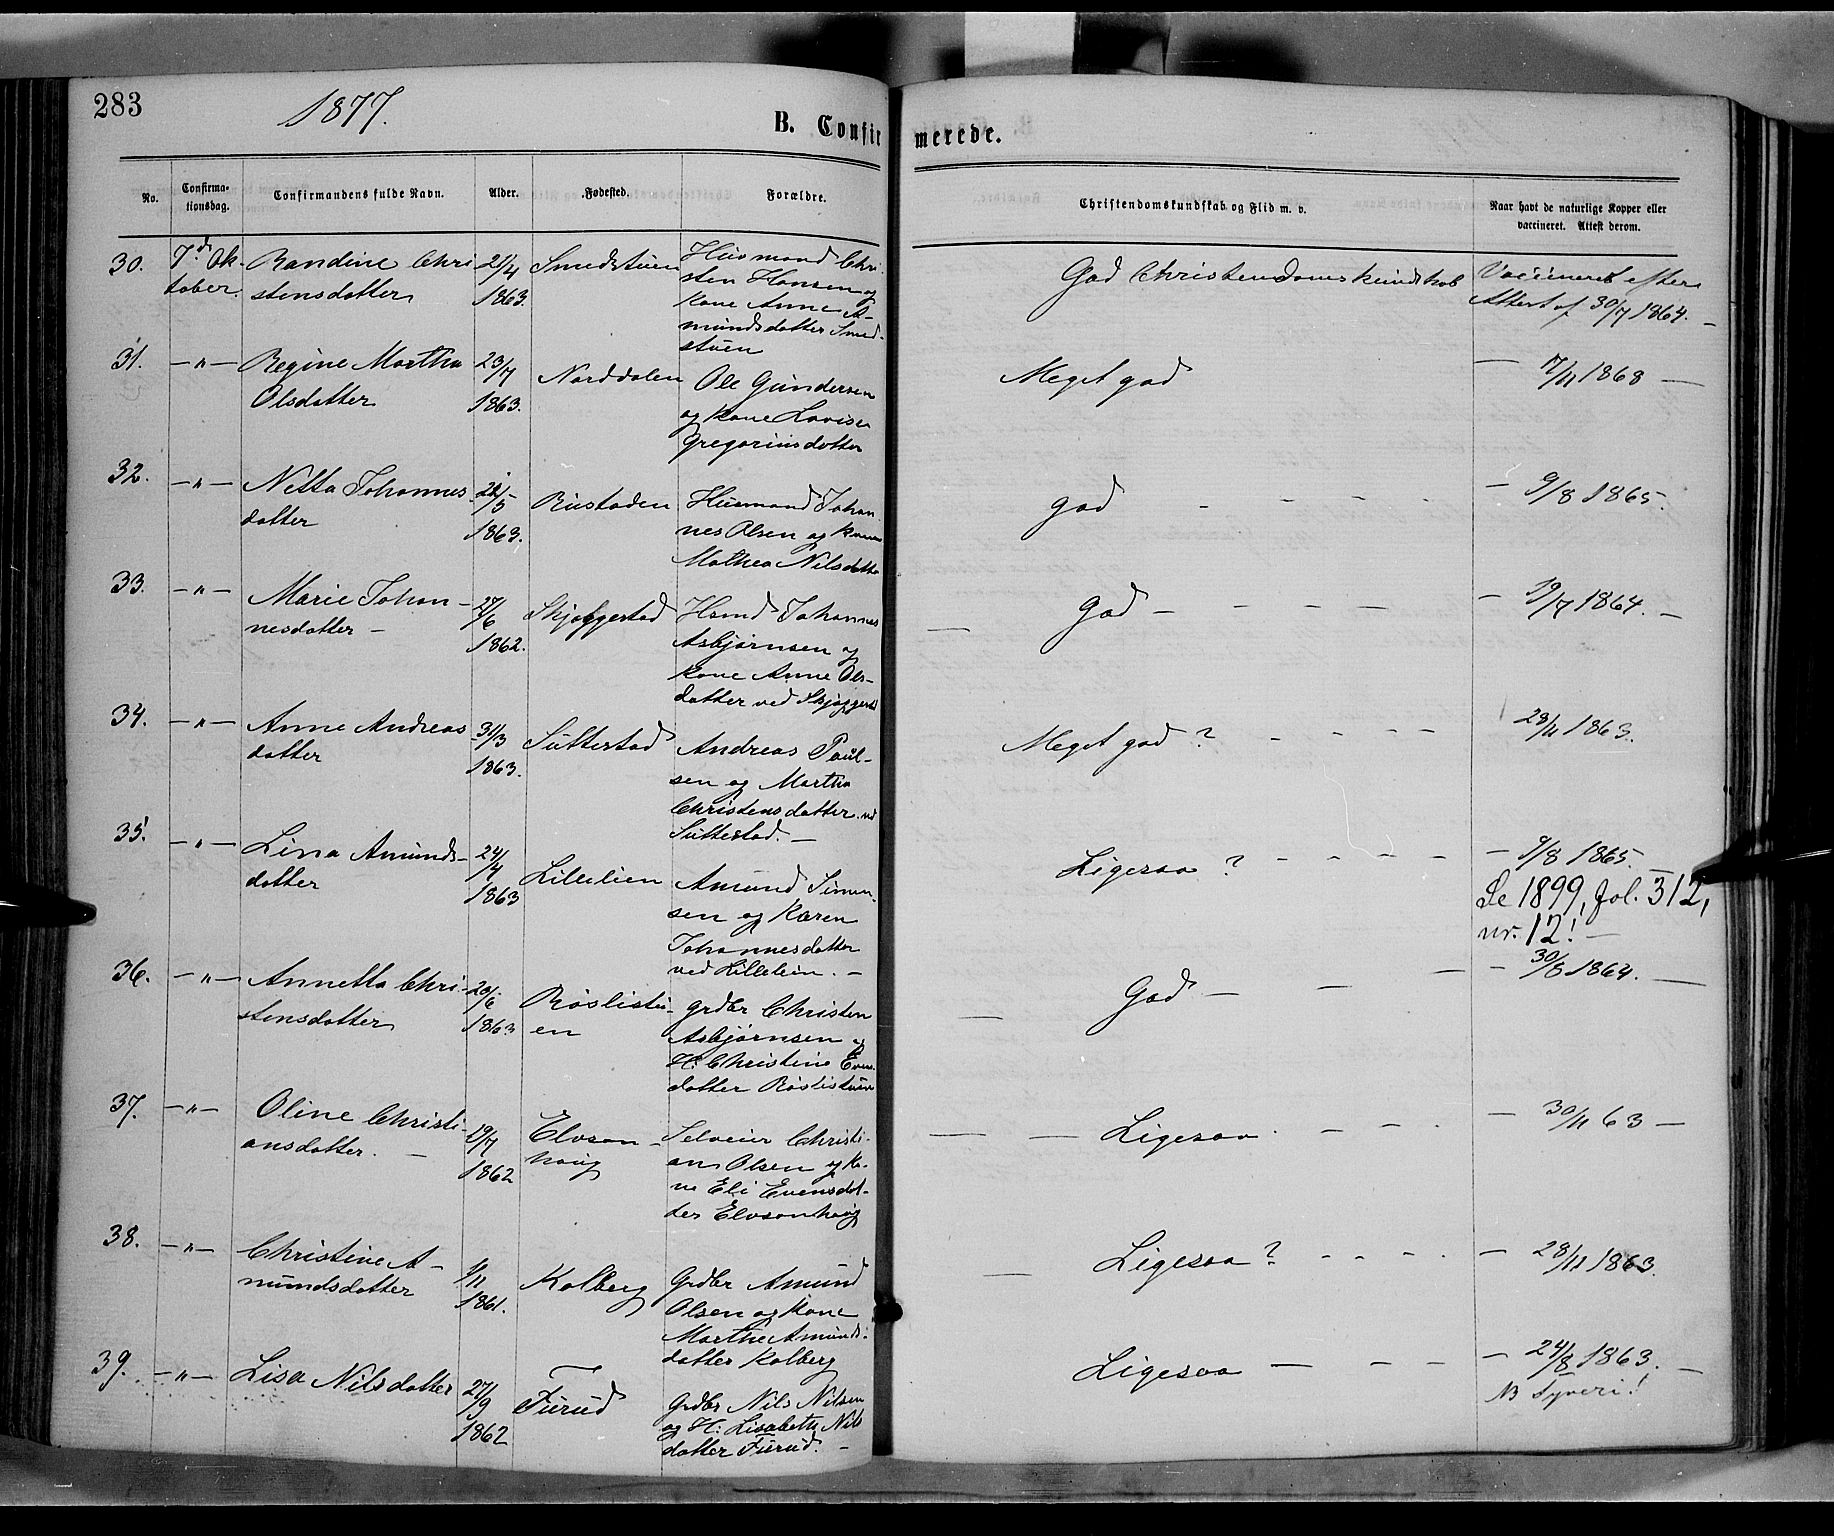 283
1877.
B. Confirmerede.
No. Confirmationsdag. Confirmandens fulde Navn. Alder. Fødested. Forældre. Christendomskundskab og Flid m. v. Naar havt de naturlige Kopper eller vaccineret. Attest derom.
30. 7de Oktober. Randine Christensdatter 21/4 1863. Smedstuen Husmand Christen Hansen og Kone Anne Amundsdatter Smedstuen God Christendomskundskab Vaccineret efter Attest af 30/7 1864. —
31. —"— Regine Martha Olsdatter 23/7 1863. Norddalen Ole Gundersen og Kone Lovise Gregoriusdatter Meget god — 7/11 1868 —
32. —"— Netta Johannesdatter 1863. Rustaden Husmand Johannes Olsen og Kone Mathea Nilsdatter god — 9/8 1865.
33. —"— Marie Johannesdatter — 27/6 1862. Skjøggestad Hsmd Johannes Asbjørnsen og Kone Anne Olsdatter ved Skjøggestad God — — 19/7 1864. —
34. —"— Anne Andreasdatter 31/3 1863. Suttestad Andreas Paulsen og Martha Christensdatter ved Suttestad. — Meget god ? 28/11 1863.
35. —"— Lina Amundsdatter 24/4 1863 Lillelien Amund Simensen og Karen Johannesdatter ved Lillelien. — Ligesaa ? — 9/8 1865.
Se 1899, fol. 312,
nr. 12! —
36. —"— Annetta Christensdatter 1863 Røslistuen grdbr Christen Asbjørnsen og H: Christine Evensdatter Røslistuen God — — 30/8 1864. —
37. —"— Oline Christiansdatter. — 29/7 1862 Elvsonhoug Selveier Christian Olsen og Kone Eli Evensdatter Elvsonhoug Ligesaa — 30/11 63 —
38. —"— Christine Amundsdatter 1/11 1861. Kolberg Grdbr Amund Olsen og Kone Marthe Amundsdatter Kolberg Ligesaa ? — 28/11 1863.
39. —"— Lisa Nilsdatter 27/9 1862 Furud Grdbr Nils Nilsen og H: Lisabeth Nilsdatter Furud. — Ligesaa — — 24/8 1863. —
NB Tyveri!